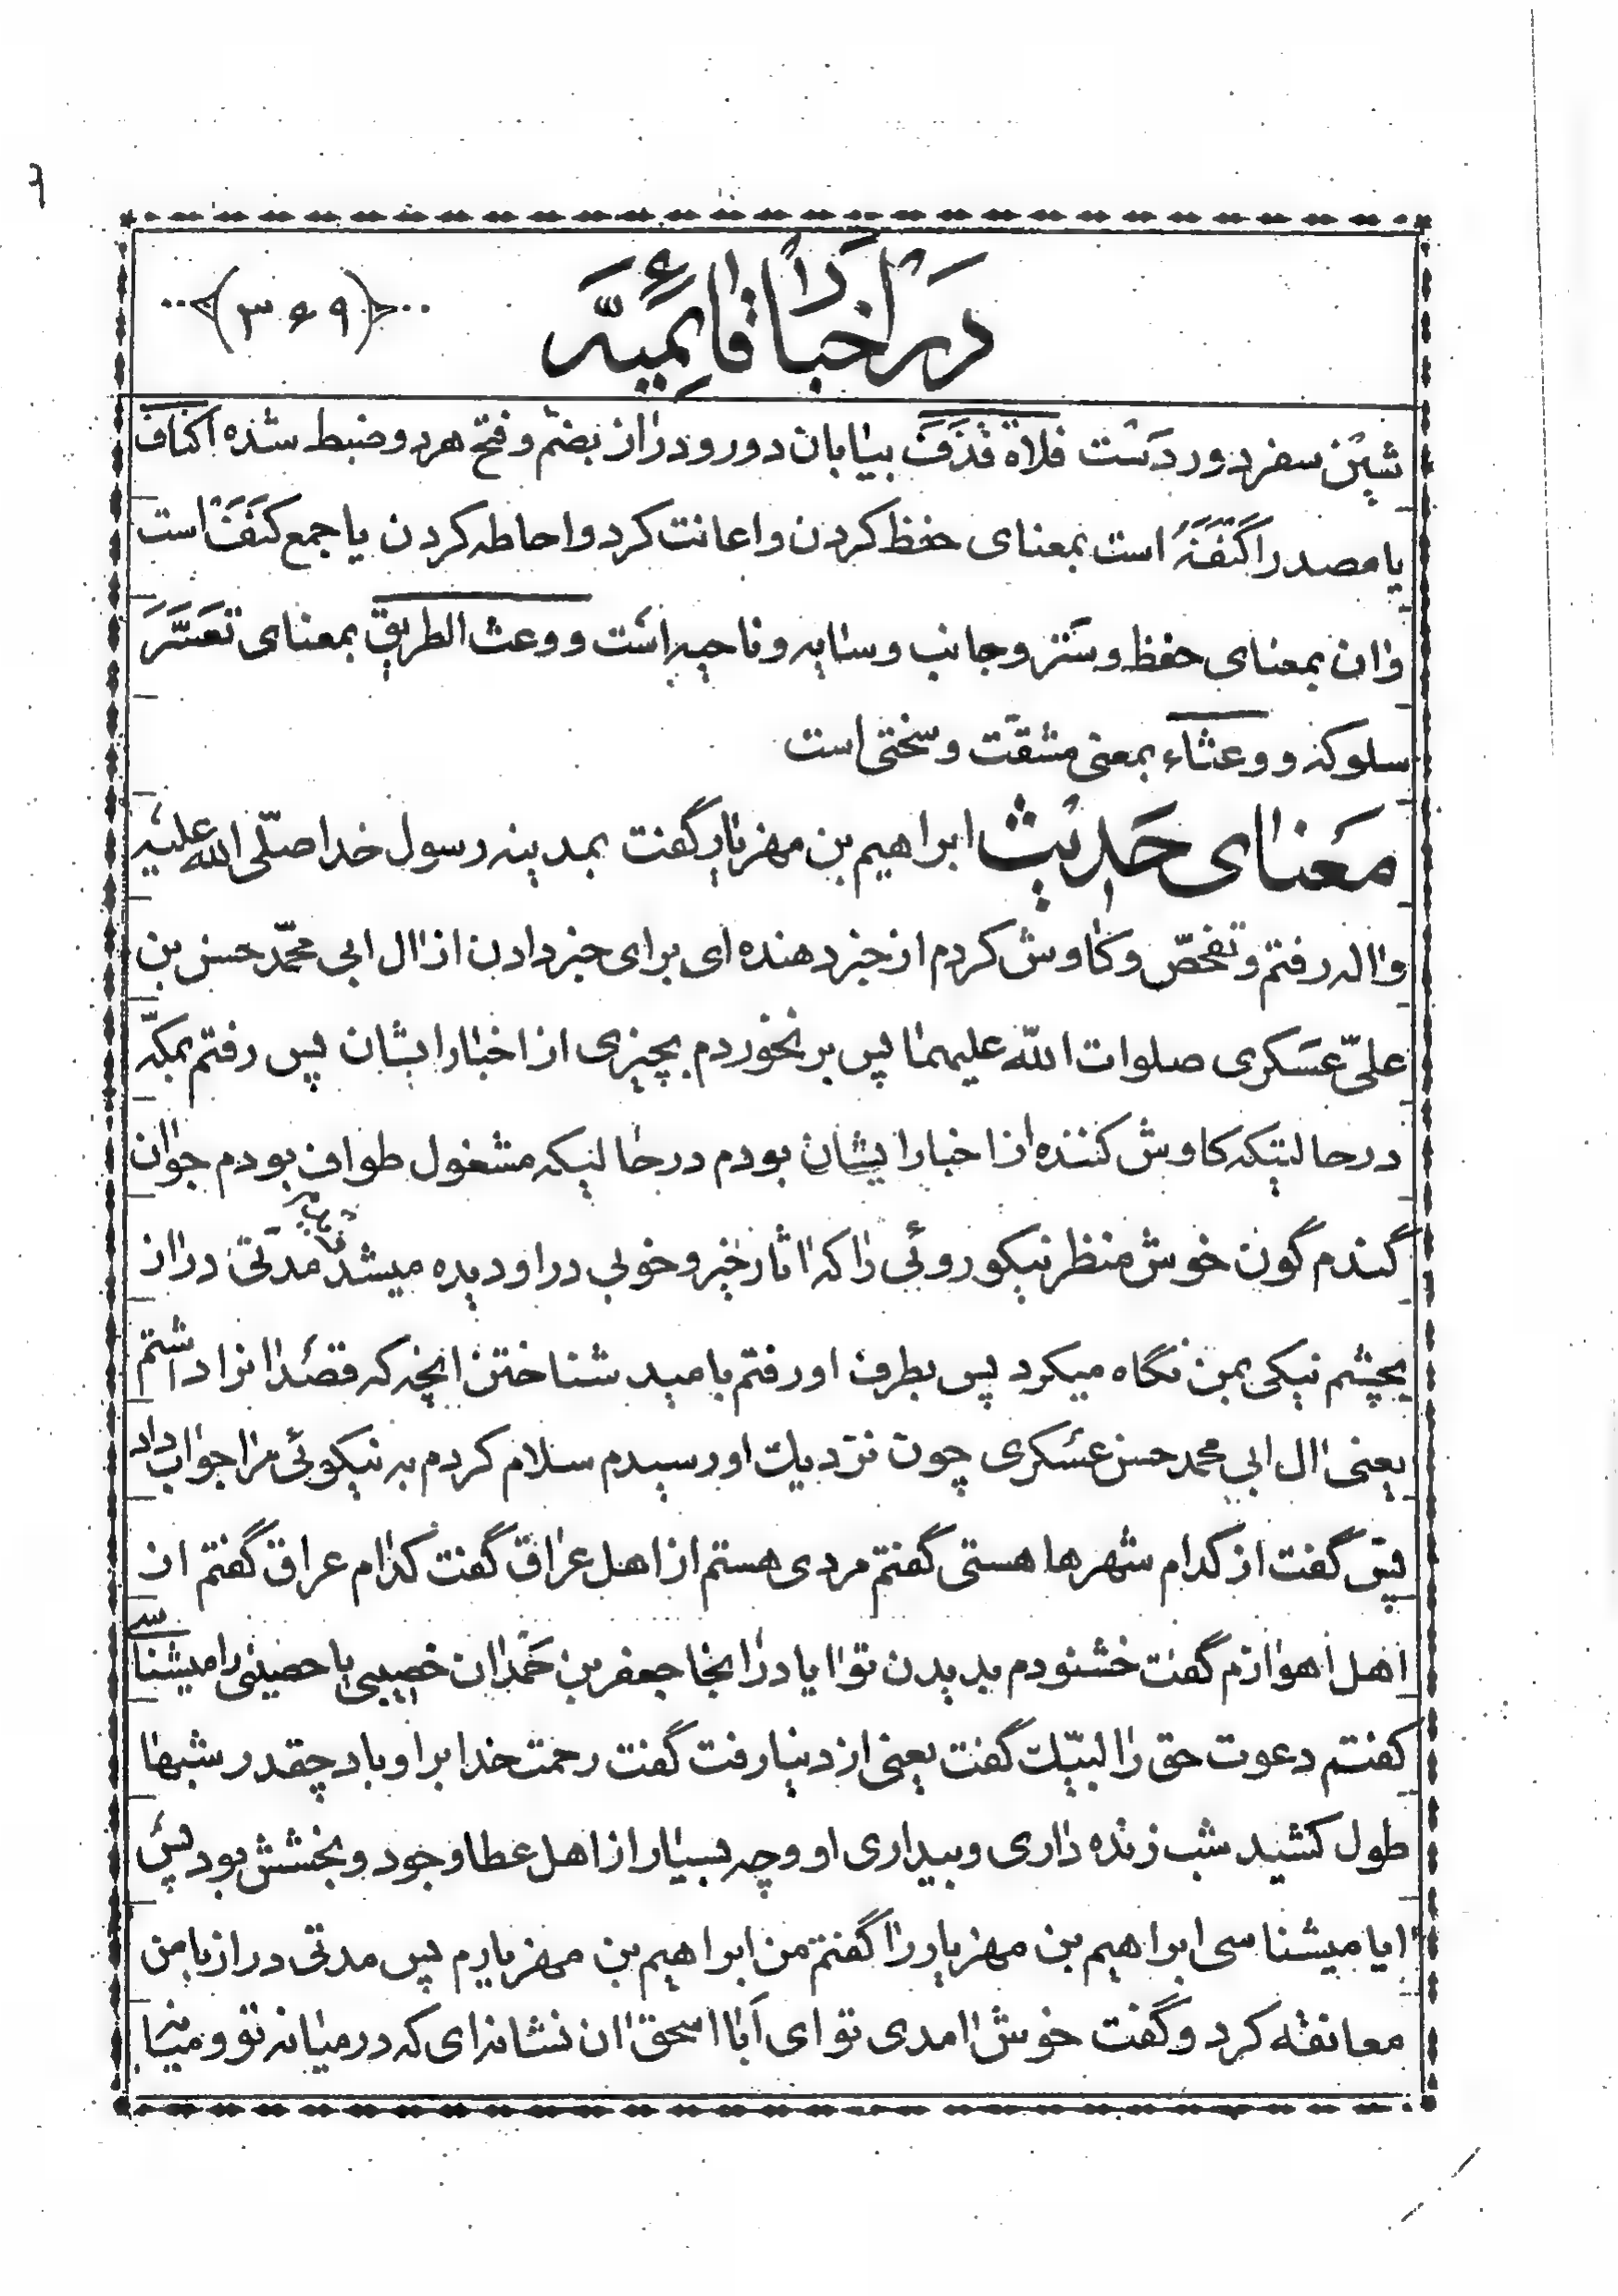 در اخبار قائمیّه
(۳۶۹)
شین سفر دور دست فلاة قَذَفَ بیابان دور و دراز بضمّ و فتح هر دو ضبط شده اکناف
یا مصدر اَکْنَفَهُ است بمعنای حفظ کردن و اعانت کرد و احاطه کردن یا جمع کَنَفَ است
و ان بمعنای حفظ و ستر و جانب و سایه و ناحیه است و وعث الطریق بمعنای تَعَسَّرَ
سلوکه و وعثاء بمعنی مشقّت و سختی است
معنای حدیث ابراهیم بن مهزیار گفت بمدینه رسول خدا صلّی الله علیه
و اله رفتم و تفحّص و کاوش کردم از خبر دهنده ای برای خبر دادن از ال ابی محمّد حسن بن
علیّ عسکری صلوات الله علیهما پس بر نخوردم بچیزی از اخبار ایشان پس رفتم بمکّه
در حالتیکه کاوش کننده از اخبار ایشان بودم در حالیکه مشغول طواف بودم جوان
گندم گون خوش منظر نیکو روئی را که اثار خیر و خوبی در او دیده میشد مدتی دراز
بچشم نیکی بمن نگاه میکرد پس بطرف او رفتم بامید شناختن انچه که قصد انرا داشتم
یعنی ال ابی محمد حسن عسکری چون نزدیك او رسیدم سلام کردم به نیکوئی مرا جواب داد
پس گفت از کدام شهرها هستی گفتم مردی هستم از اهل عراق گفت کدام عراق گفتم از
اهل اهوازم گفت خشنودم بدیدن تو ایا در انجا جعفر بن حَمدان خصیبی یا حصینی را میشناسی
گفتم دعوت حق را لبیّك گفت یعنی از دنیا رفت گفت رحمت خدا بر او باد چقدر شبها
طول کشید شب زنده داری و بیداری او و چه بسیار از اهل عطا و جود و بخشش بود پس
ایا میشناسی ابراهیم بن مهزیار را گفتم من ابراهیم بن مهزیارم پس مدتی دراز با من
معانقه کرد و گفت خوش امدی تو ای اَبا اسحق ان نشانه ای که در میانه تو و میانه